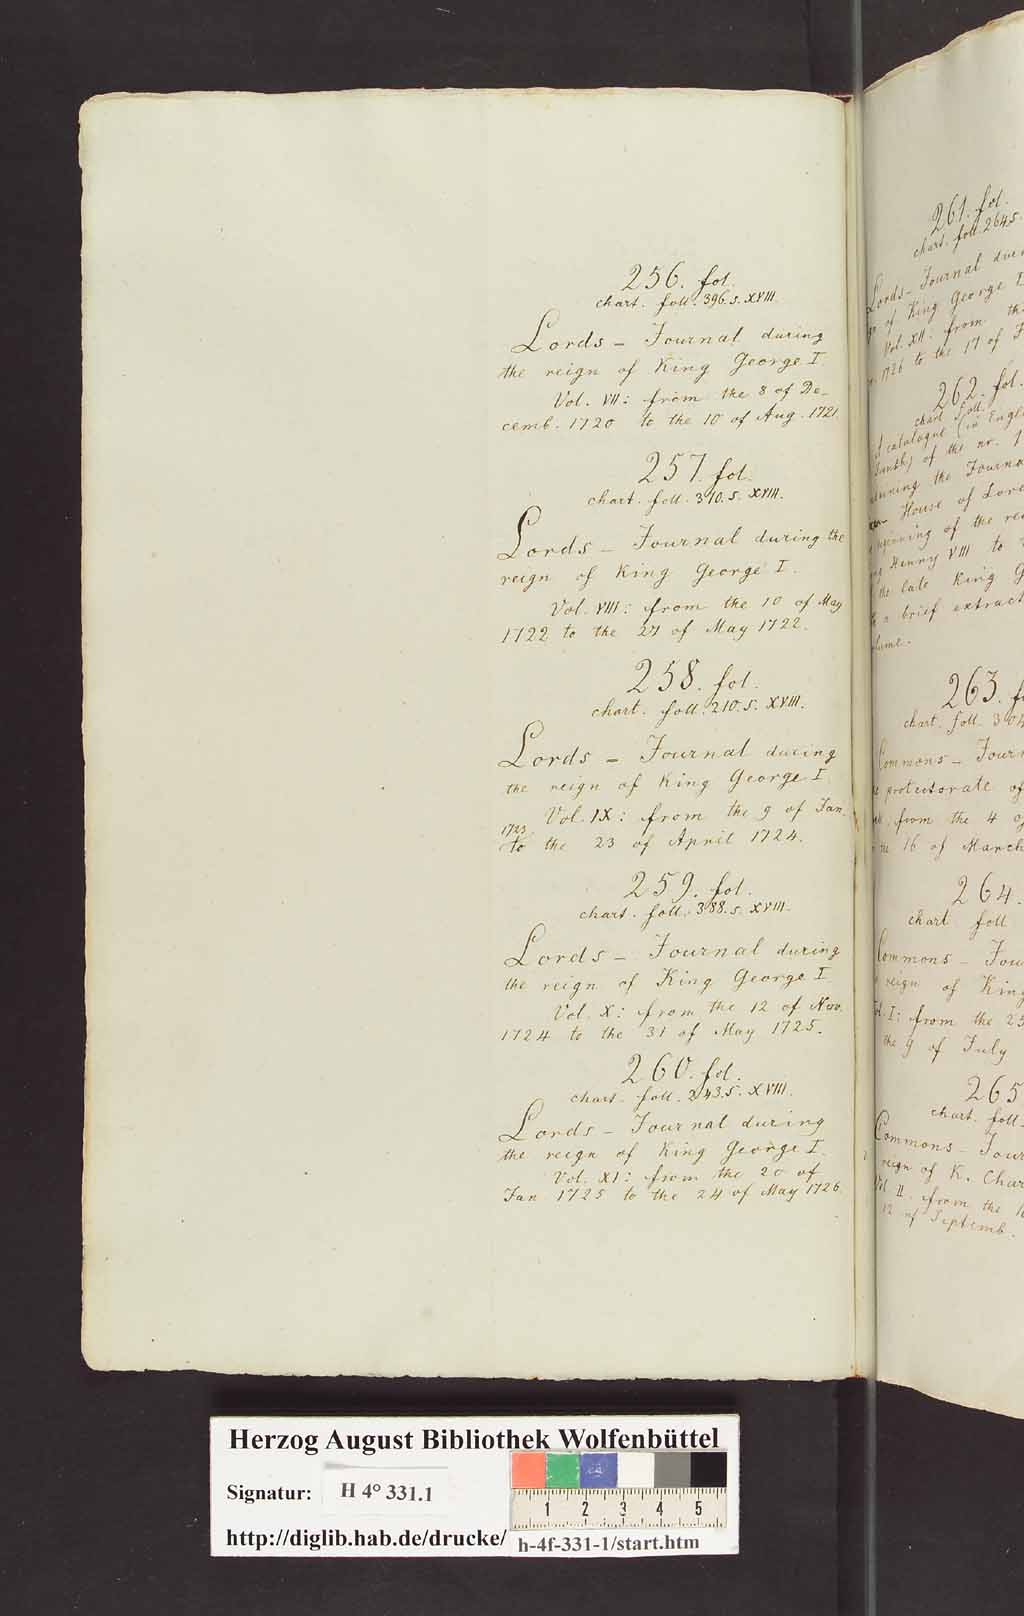 256. fol.
chart. foll. 396. s. XVIII.
Lords – Journal during
the reign of King George I.
Vol. VII: from the 8 of De-
cemb. 1720 to the 10 of Aug. 1721.
257. fol.
chart. foll. 310. s. XVIII.
Lords – Journal during the
reign of King George I.
Vol. VIII: from the 10 of May
1722 to the 27 of May 1722.
258. fol.
chart. foll. 210. s. XVIII.
Lords – Journal during
the reign of King George I.
Vol. IX: from the 9 of Jan.
1723.
to the 23 of April 1724.
259. fol.
chart. foll. 388. s. XVIII.
Lords – Journal during
the reign of King George I.
Vol. X: from the 12 of Nov.
1724 to the 31 of May 1725.
260. fol.
chart. foll. 243. s. XVIII.
Lords – Journal during
the reign of King George I.
Vol. XI: from the 20 of
Jan 1725 to the 24 of May 1726.
261. fol.
chart. foll. 264. s.
Lords – Journal
of King George
Vol. XII. from
1726 to the 17 of
262. fol.
chart. foll.
catalogue (in
of the nr.
the Journa
House of Lor
of the
Henry VIII to
the late King G
a brief extract
263. f
chart. foll. 304
Commons – Journ
protectorate of
from the 4 of
the 16 of March
264.
chart foll
Commons – Jou
reign of King
Vol. I: from the 25
the 9 of July
265
chart. foll.
Commons – Jour
reign of K. Char
Vol II. from the 16
12 of Septemb.
Herzog August Bibliothek Wolfenbüttel
Signatur: H 4° 331.1
1 2 3 4 5
http://diglib.hab.de/drucke/ h-4f-331-1/start.htm